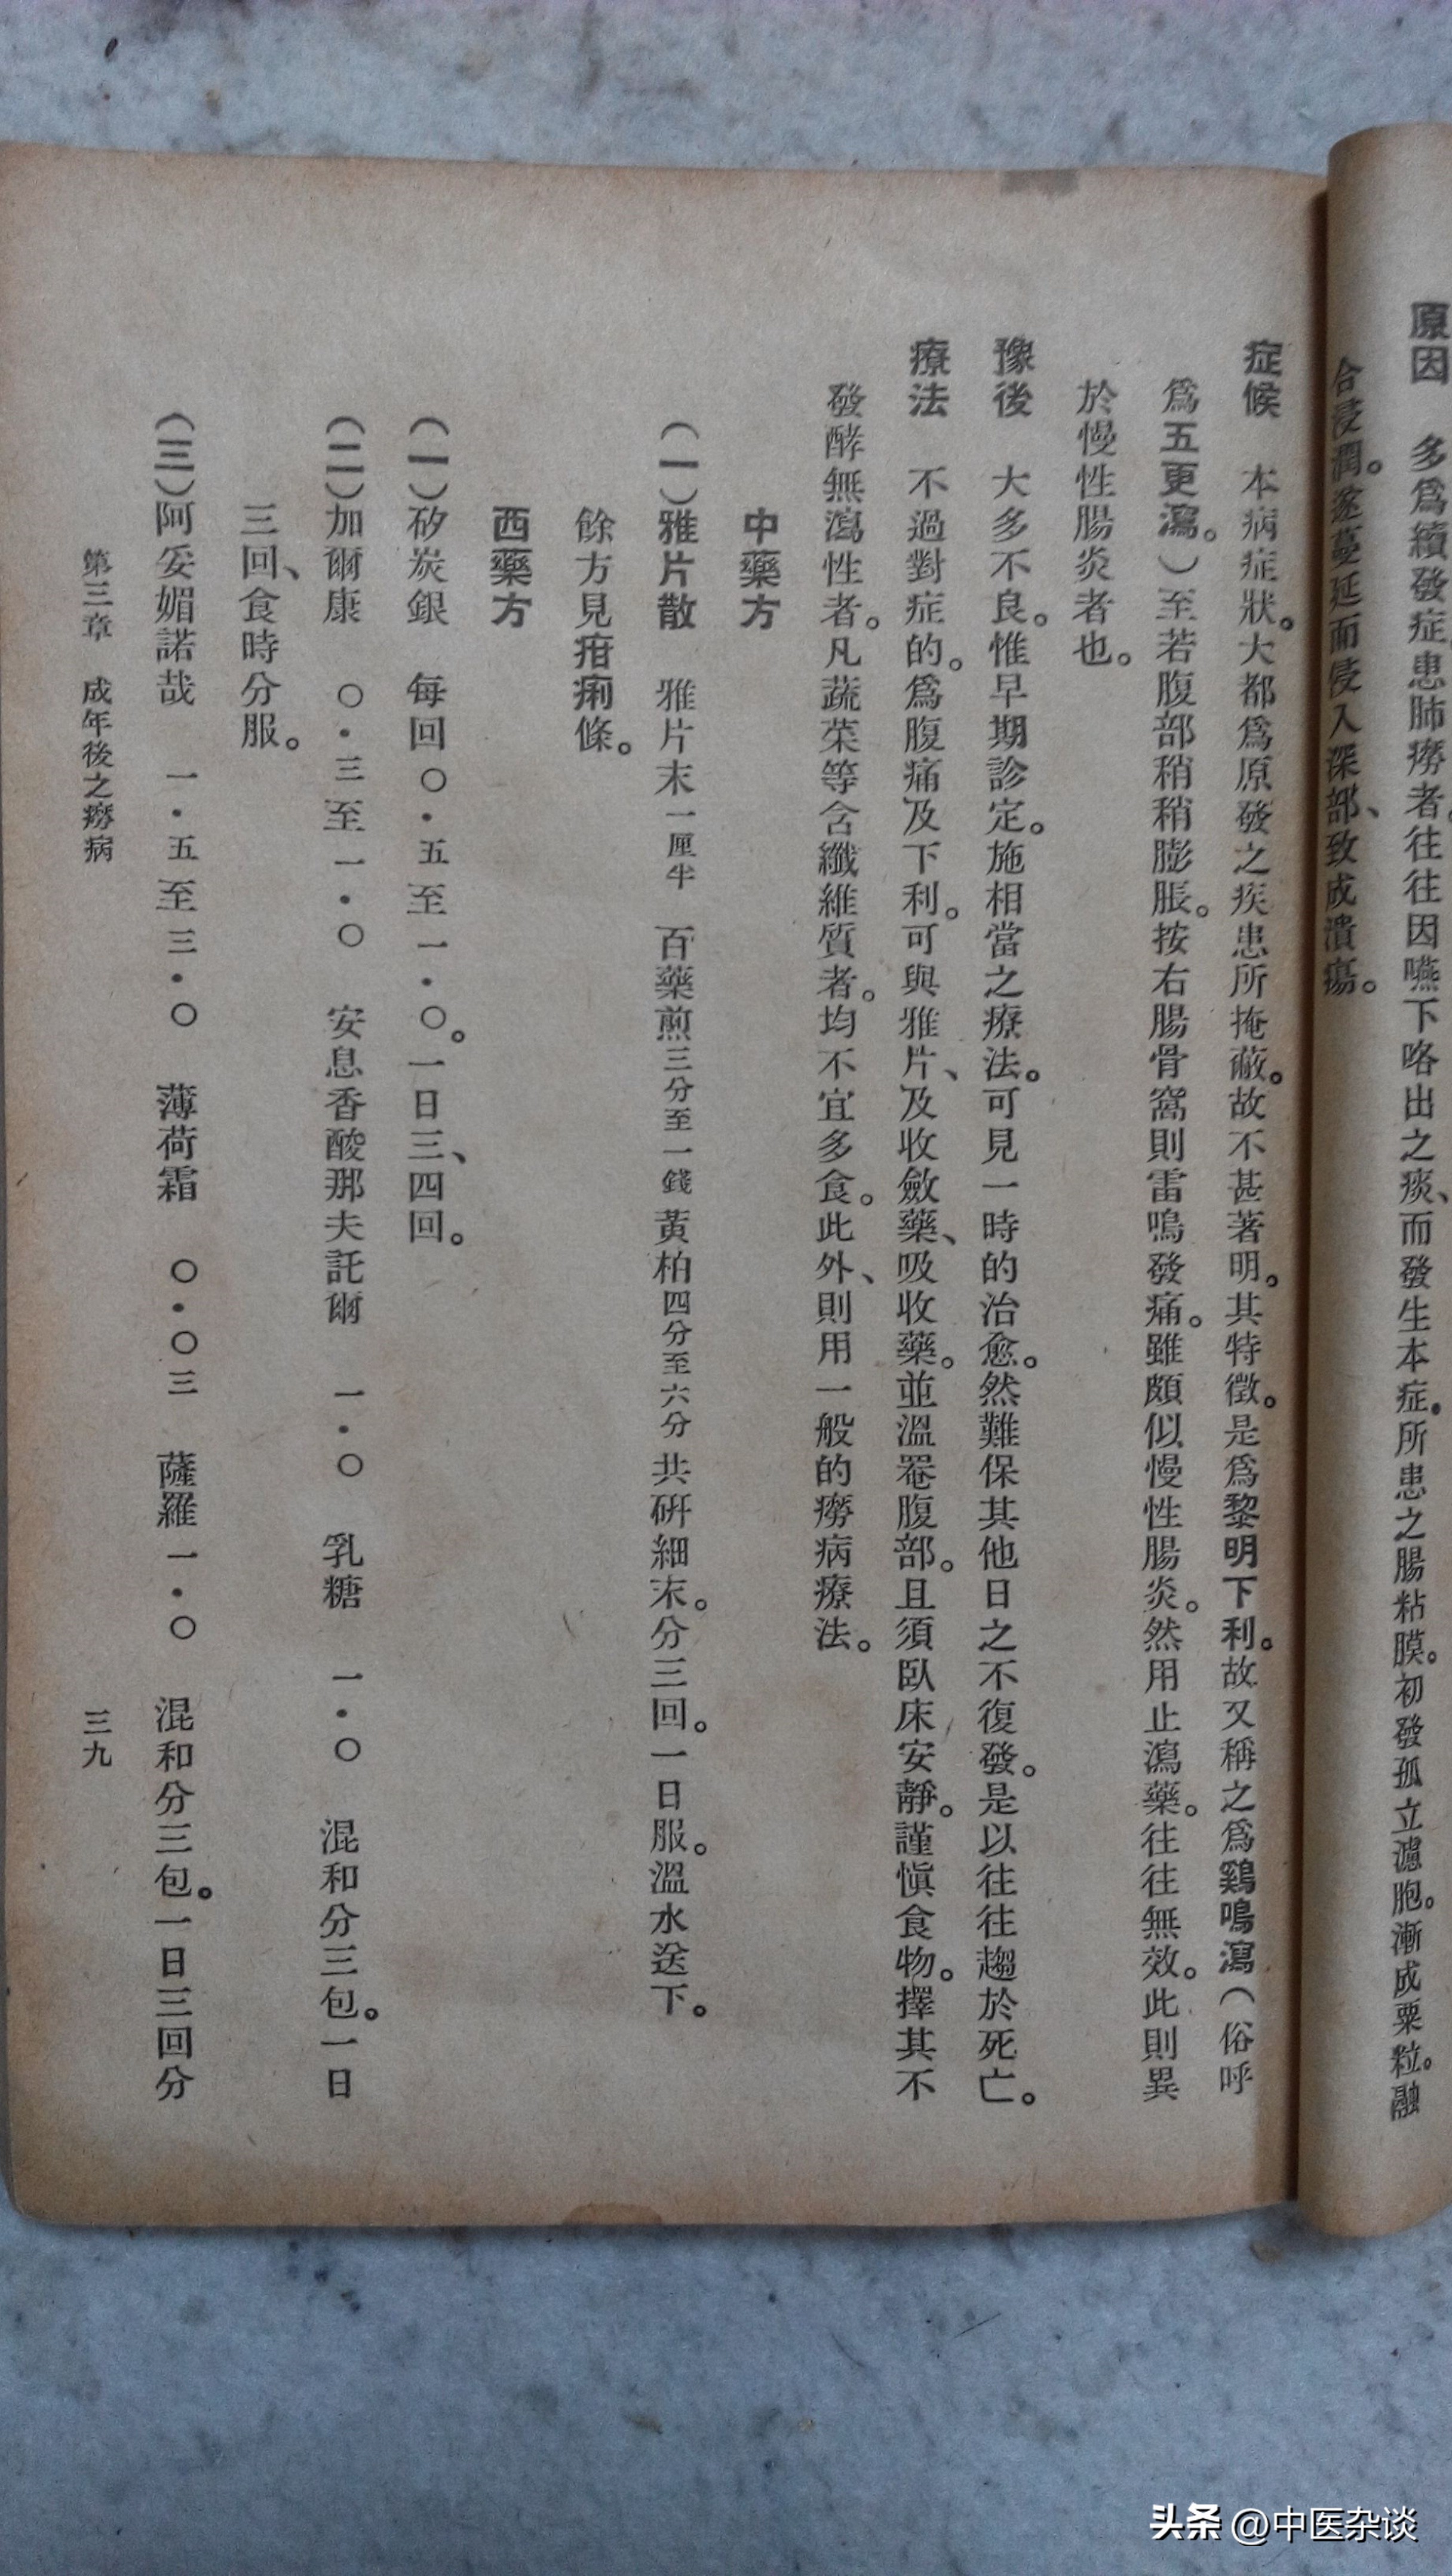 原因　多爲續發症患肺癆者。往往因嚥下咯出之痰、而發生本症。所患之腸粘膜。初發孤立濾胞。漸成粟粒。融
合浸潤。遂蔓延而侵入深部、致成潰瘍。
症候　本病症狀。大都爲原發之疾患所掩蔽。故不甚著明。其特徵。是爲黎明下利。故又稱之爲鷄鳴瀉（俗呼
爲五更瀉。）至若腹部稍稍膨脹。按右腸骨窩則雷鳴發痛。雖頗似慢性腸炎。然用止瀉藥。往往無效。此則異
於慢性腸炎者也。
豫後　大多不良。惟早期診定。施相當之療法。可見一時的治愈。然難保其他日之不復發。是以往往趨於死亡。
療法　不過對症的。爲腹痛及下利。可與雅片、及收斂藥、吸收藥。並溫罨腹部。且須臥床安靜。謹慎食物。擇其不
發酵無瀉性者。凡蔬菜等含纖維質者。均不宜多食。此外、則用一般的癆病療法。
中藥方
（一）雅片散　雅片末一厘半　百藥煎三分至一錢　黃柏四分至六分　共研細末。分三回。一日服。溫水送下。
餘方見疳痢條。
西藥方
（一）矽炭銀　每回〇·五至一·〇。一日三、四回。
（二）加爾康　〇·三至一·〇　安息香酸那夫託爾　一·〇　乳糖　一·〇　混和分三包。一日
三回、食時分服。
（三）阿妥媚諾哉　一·五至三·〇　薄荷霜　〇·〇三　薩羅一·〇　混和分三包。一日三回分
第三章　成年後之癆病　三九
头条 @中医杂谈